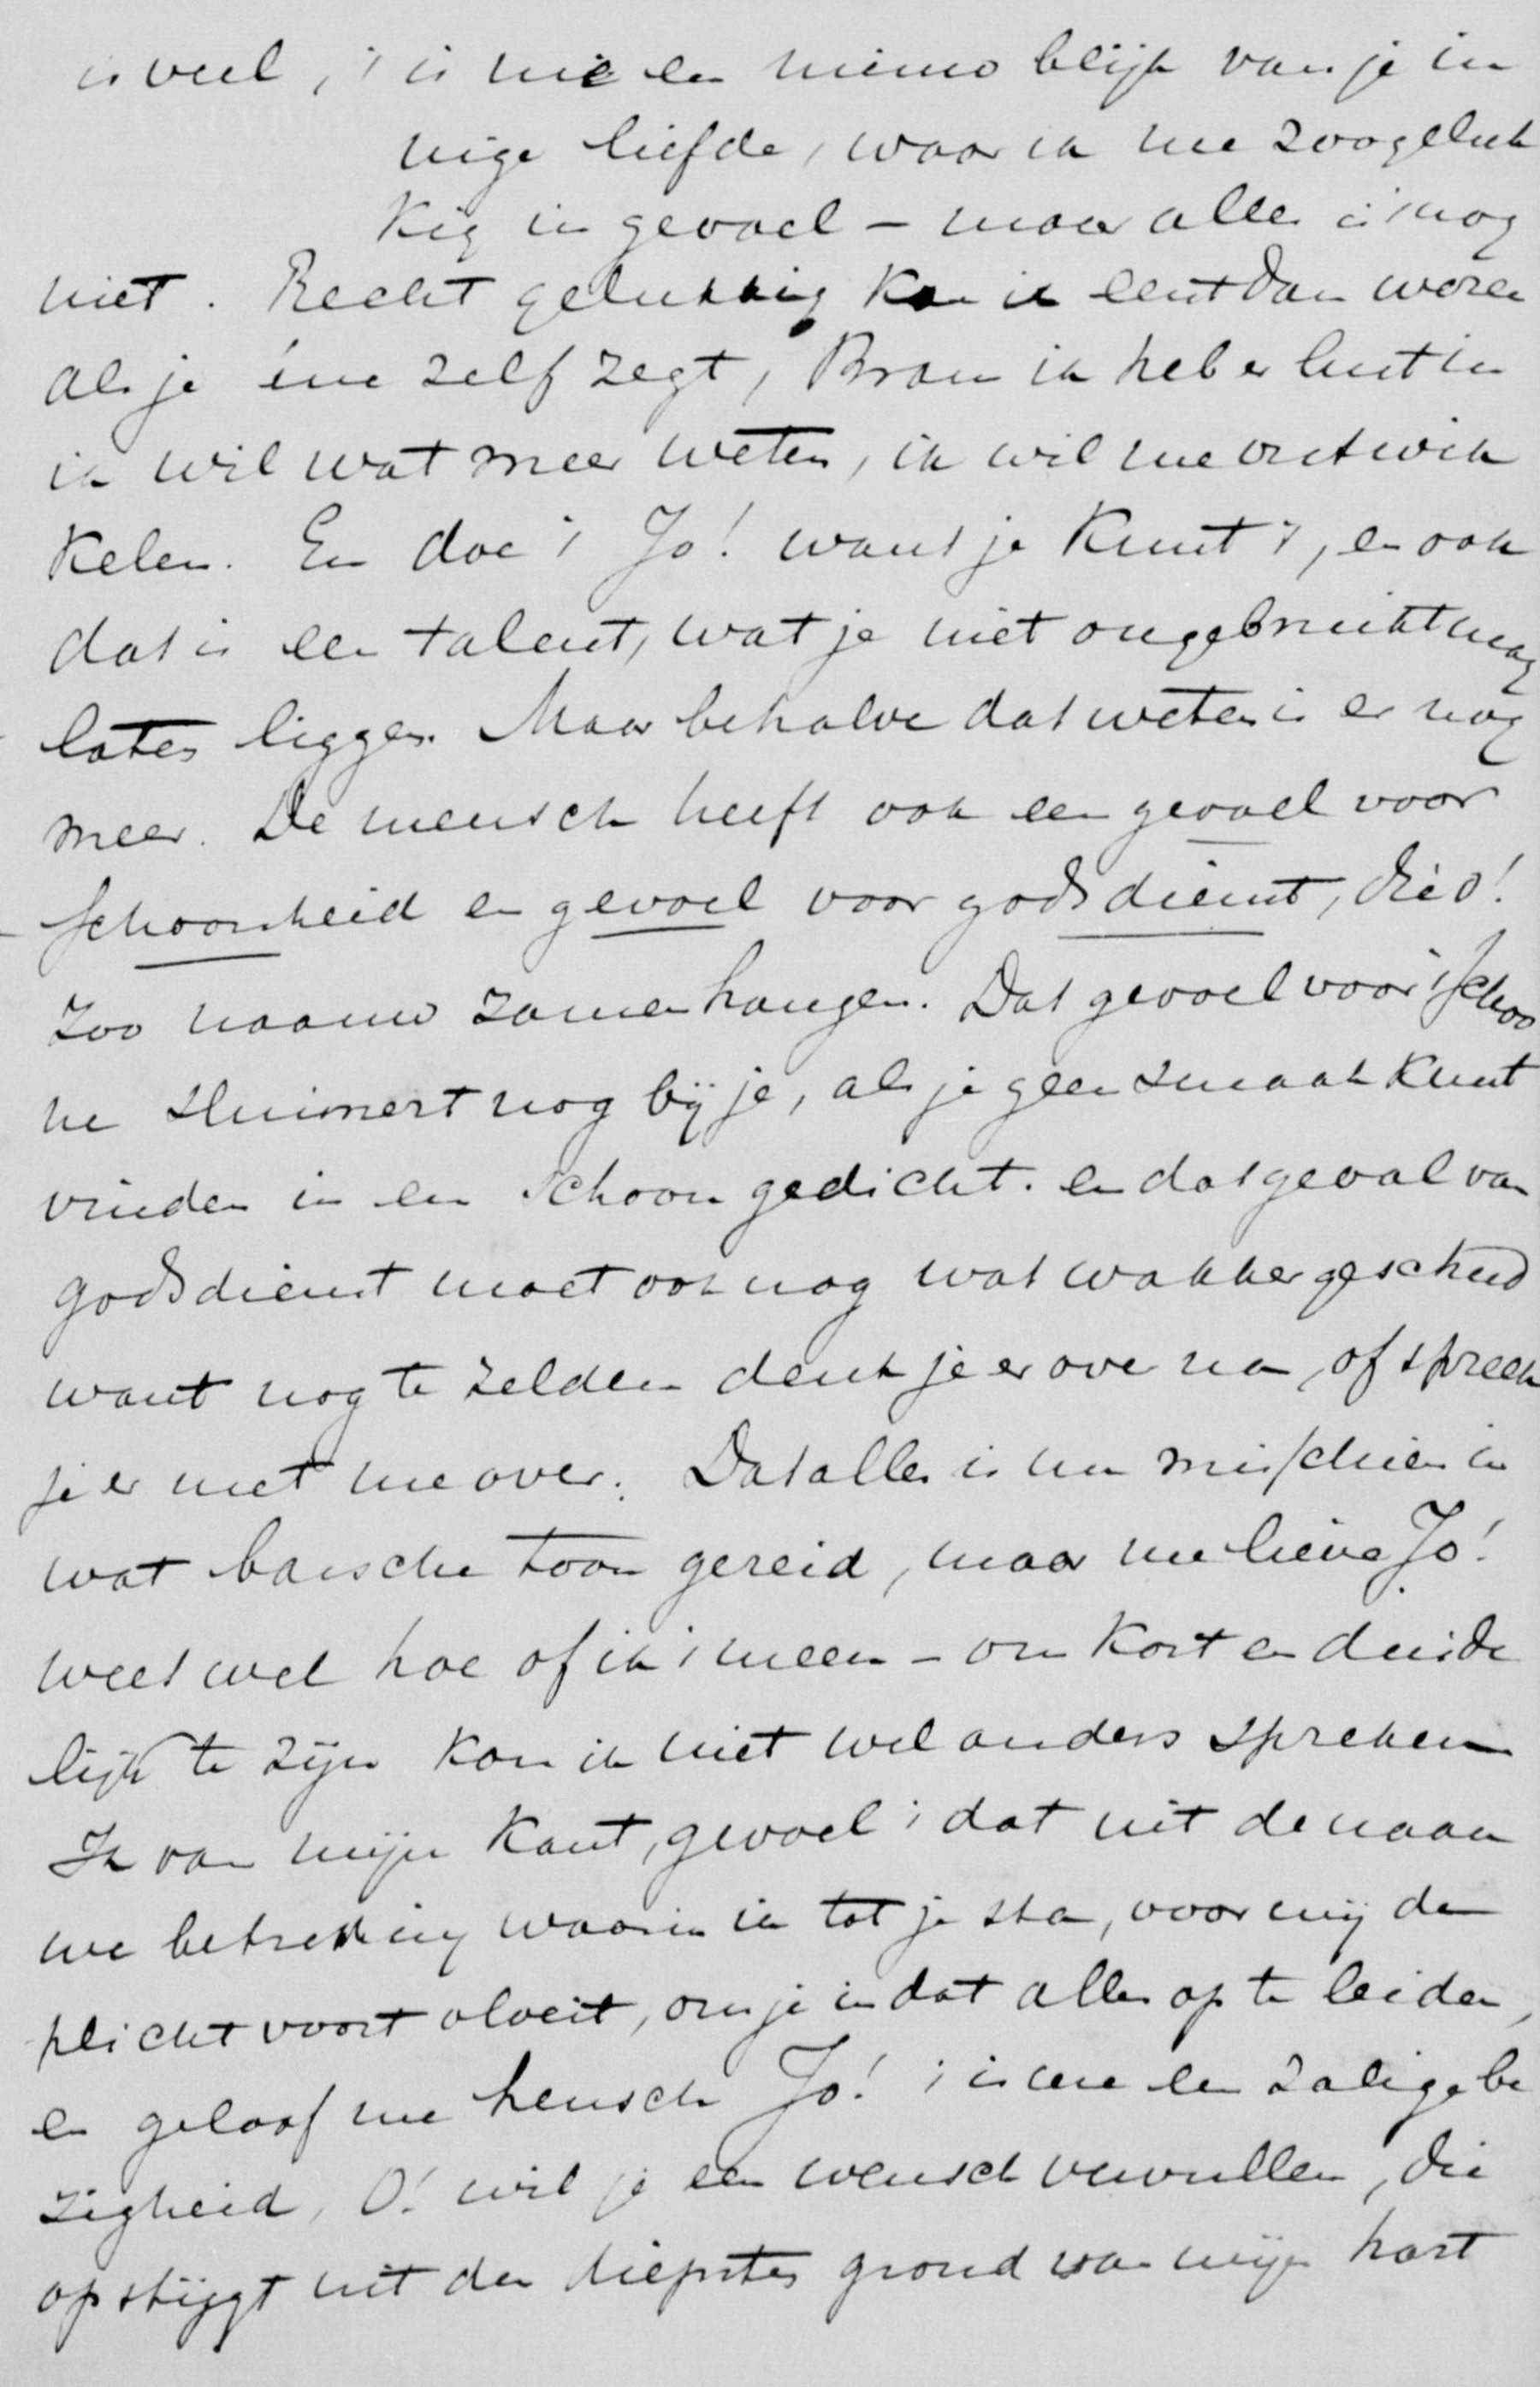 is veel, 't is me een nieuwe blijk van je in
nige liefde, waar ik me zoo geluk
kig in gevoel – maar alles is 't nog
niet. Recht gelukkig kan ik eerst dan wezen
als je me zelf zegt, Bram ik heb er lust in
ik wil wat meer weten, ik wil me ontwik
kelen. En doe 't Jo! want je kunt 't, en ook
dat is een talent, wat je niet ongebruikt mag
laten liggen. Maar behalve dat weten is er nog
meer. De mensch heeft ook een gevoel voor
schoonheid en gevoel voor godsdienst, die o!
zoo naauw zamenhangen. Dat gevoel voor 't schoo
ne sluimert nog bij je, als je geen smaak kunt
vinden in een schoon gedicht. en dat gevoel van
godsdienst moet ook nog wat wakker geschud
want nog te zelden denk je er over na, of spreek
je er met me over. Dat alles is nu misschien in
wat barsche toon gezeid, maar me lieve Jo!
weet wel hoe of ik 't meen – om kort en duide
lijk te zijn kon ik niet wel anders spreken
Ik van mijn kant, gevoel 't dat uit de naau
we betrekking waarin ik tot je sta, voor mij de
plicht voortvloeit, om je in dat alles op te leiden,
en geloof me heusch Jo! 't is me een zalige be
zigheid, O! wil je een wensch vervullen, die
opstijgt uit den diepsten grond van mijn hart